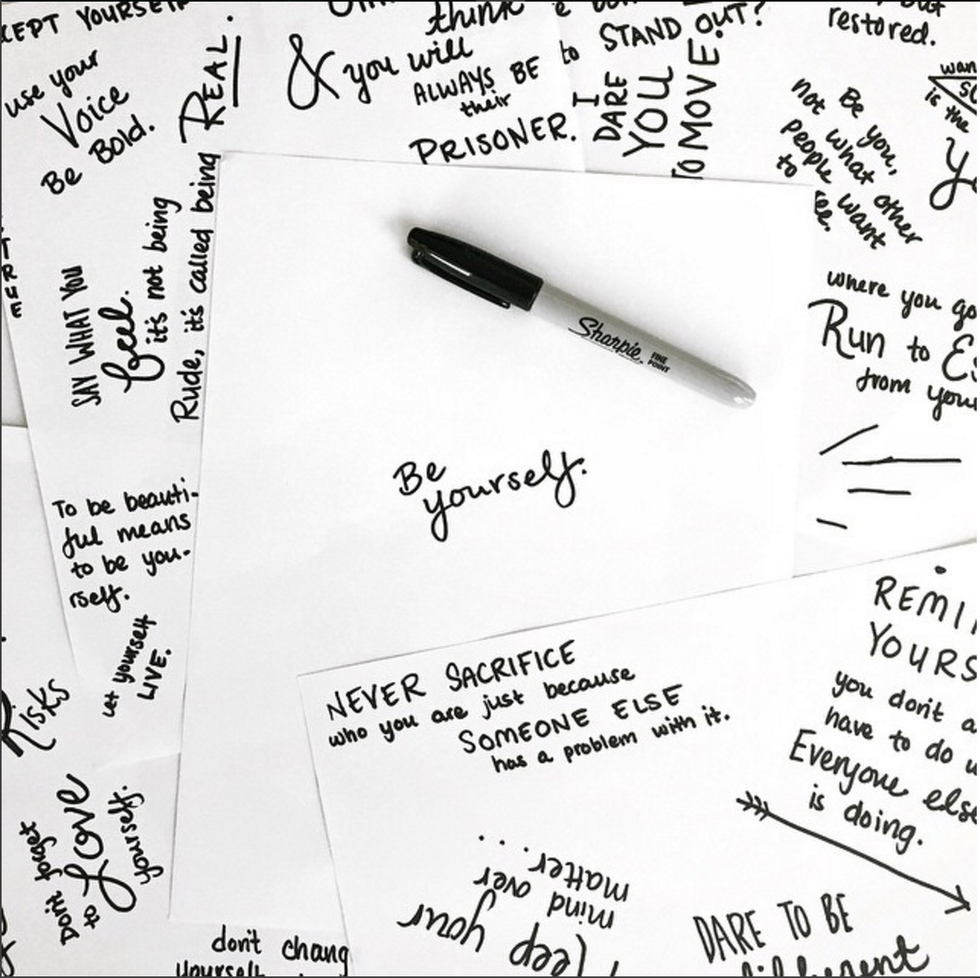 CEPT YOURSELF
use your
Voice
Be BOLD.
REAL.
think
& you will
ALWAYS BE
their
PRISONER.
to STAND OUT?
I
DARE
YOU
TO MOVE.
restored.
is the
Be you,
not what other
people want
to see.
SAY WHAT YOU
feel.
it's not being
Rude, it's called being
where you go
Run to
from your
Sharpie.
FINE
POINT
Be
yourself.
To be beauti-
ful means
to be you-
rself.
Let yourself
LIVE.
Risks
Don't forget
to Love
yourself.
NEVER SACRIFICE
who you are just because
SOMEONE ELSE
has a problem with it.
REMI
YOURS
you don't a
have to do w
Everyone else
is doing.
keep your
mind over
matter...
DARE TO BE
different
don't chang
yourself